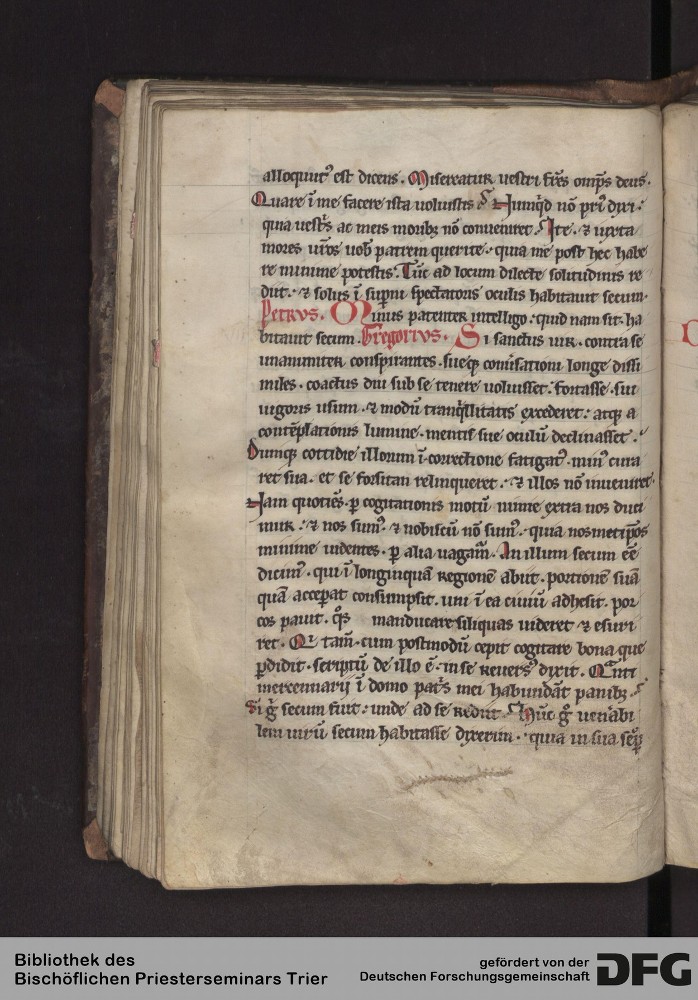 alloquut᷒ est dicens. Misereatur uestri fr̄es omp̄s deus.
Quare ī me facere ista uoluistis? Nunq̇d nō pri᷒ dixi.
quia uest̄s ac meis morib; nō conueniret. Ite. & iuxta
mores ur̄os uob᷒ patrem querite. quia me post hec habe
re minime potestis. Tūc ad locum dilecte solitudinis re
diit. & solus ī sup̄ni spectatoris oculis habitauit secum.
Petrus. Minus patenter intelligo. quid nam sit. ha
bitauit secum. Gregorius. Si sanctus uir. contra se
unanimiter conspirantes. sueq; conūsationi longe dissi
miles. coactus diu sub se tenere uoluisset. fortasse. sui
uigoris usum. & modū tranq̇llitatis excederet. atq; a
contēplationis lumine. mentis sue oculū declinasset.
Dumq; cottidie illorum ī correctione fatigat᷒. min᷒ cura
ret sua. et se forsitan relinqueret. & illos nō inueniret.
Nam quotiēs. p̱ cogitationis motū nimie extra nos duci
mur. & nos sum᷒. & nobiscū nō sum᷒. quia nosmetip̄os
minime uidentes. p̱ alia uagam̄. An illum secum eē
dicim᷒. qui ī longinquā regionē abiit. portionē suā
quā accep̄at consumpsit. uni ī ea ciuiū adhesit. por
cos pauit. q̊s manducare siliquas uideret & esuri
ret. Qi tam̄. cum postmodū cepit cogitare bona que
p̱didit. scriptū de illo ē. in se reuers᷒ dixit. Quanti
mercennarij ī domo pat̄s mei habundāt panib;.
Si g̊ secum fuit. unde ad se rediit? Hūc g̊ uen̄abi
lem uirū secum habitasse dixerim. quia in sua sēp̱
Bibliothek des
Bischöflichen Priesterseminars Trier
gefördert von der
Deutschen Forschungsgemeinschaft
DFG